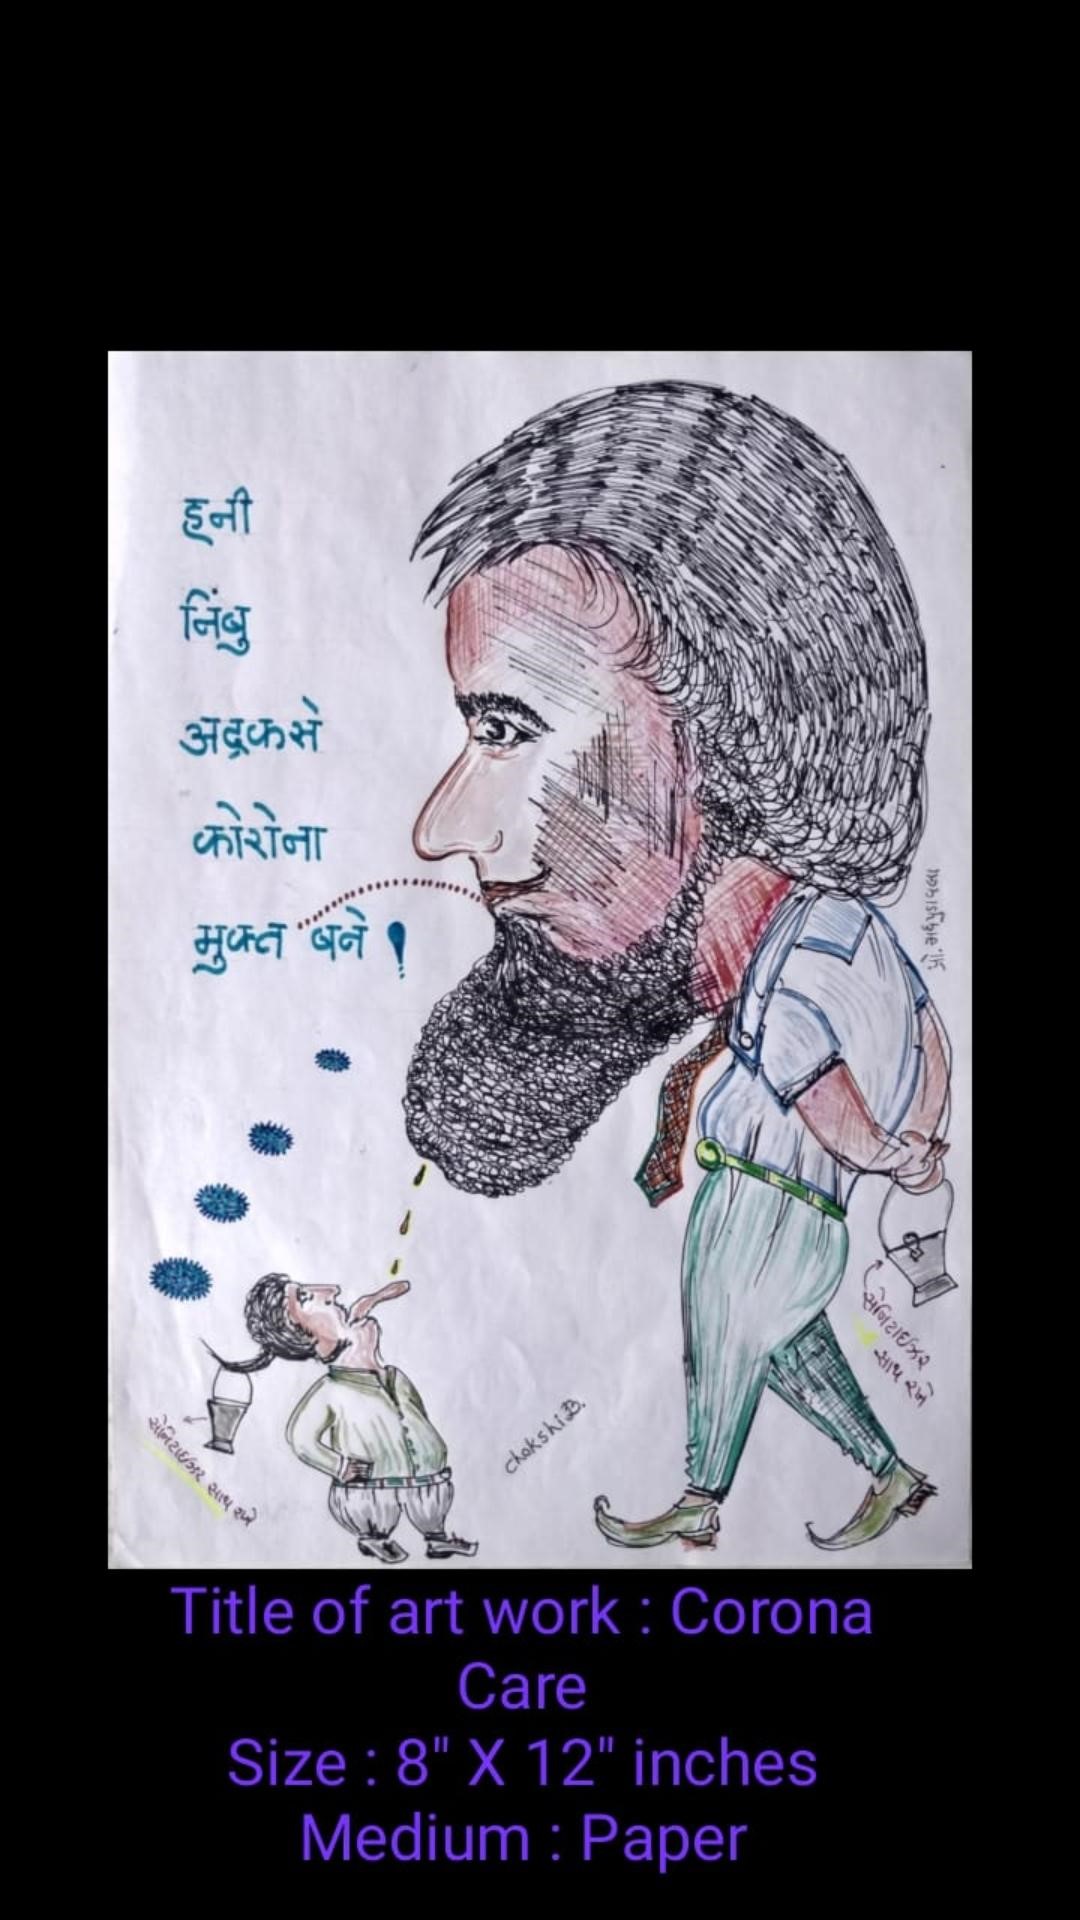 हनी
निंबु
अद्रकसे
कोरोना
मुक्त बने !
સેનિટાઈઝર
સાથ રખે
સેનિટાઈઝર સાથ રખે
chokshi.B.
Title of art work : Corona
Care
Size : 8" X 12" inches
Medium : Paper